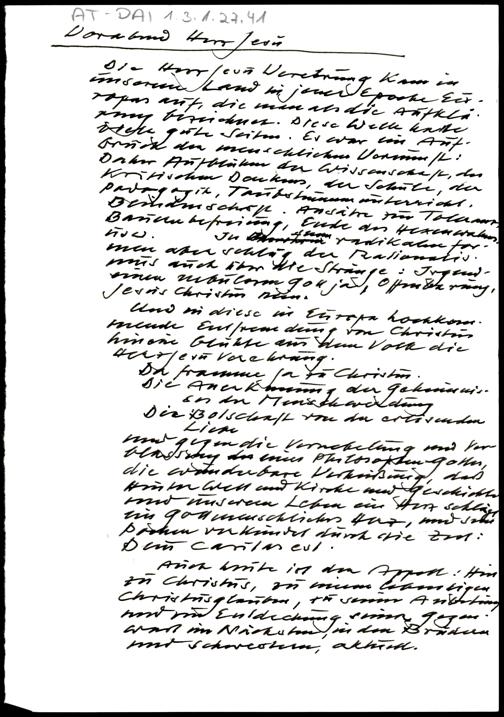 AT-DAI 1.3.1.27.41
Vorabend Herz Jesu
Die Herz Jesu Verehrung kam in
unserem Land in jener Epoche Eu-
ropas auf, die man als die Aufklä-
rung bezeichnet. Diese Welle hatte
viele gute Seiten. Es war ein Auf-
bruch der menschlichen Vernunft:
Daher Aufblühen der Wissenschaft, des
kritischen Denkens, der Schule, der
Pädagogik, Taubstummenunterricht,
Beamtenschaft. Ansätze zur Toleranz,
Bauernbefreiung, Ende des Hexenwahns
usw. In radikalen For-
men aber schlug der Rationalis-
mus auch über die Stränge: Irgend-
einen nebulosen Gott ja, Offenbarung,
Jesus Christus nein.
Und in diese in Europa hochkom-
mende Entfremdung von Christus
hinein blühte aus dem Volk die
Herz Jesu Verehrung.
Das fromme Ja zu Christus.
Die Anerkennung des Geheimnis-
ses der Menschwerdung
Die Botschaft von der erlösenden
Liebe
und gegen die Vernebelung und Ver-
blassung in einen Philosophen-Gott,
die wunderbare Verheißung, daß
hinter Welt und Kirche und Geschichte
und unserem Leben ein Herz schlägt
ein gottmenschliches Herz, und sein
Pochen verkündet durch die Zeit:
Deus Caritas est.
Auch heute ist der Appell: Hin
zu Christus, zu einem lebendigen
Christusglauben, zu seiner Anbetung
und zur Entdeckung seiner Gegen-
wart im Nächsten, in den Brüdern
und Schwestern, aktuell.